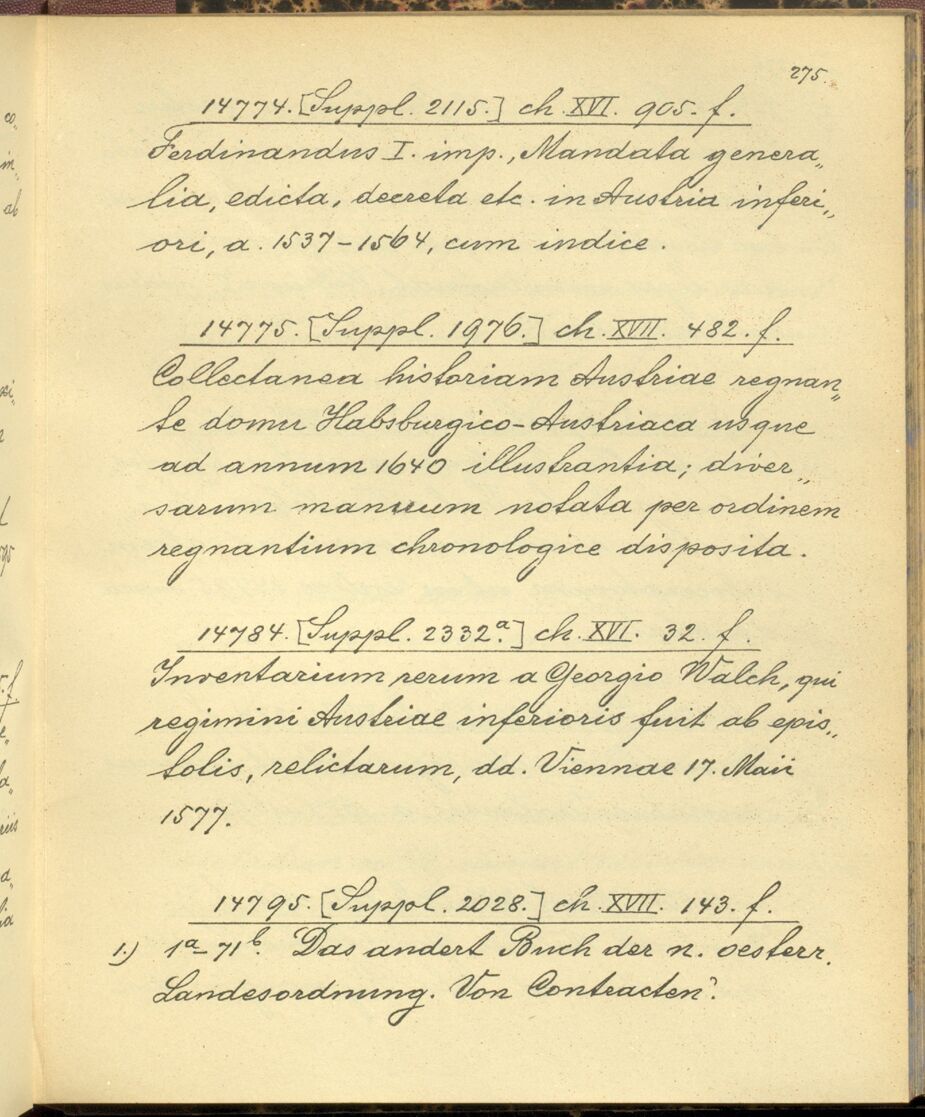 275.
14774. [Suppl. 2115.] ch. XVI. 905. f.
Ferdinandus I. imp., Mandata genera„
lia, edicta, decreta etc. in Austria inferi„
ori, a. 1537-1564, cum indice.
14775. [Suppl. 1976.] ch. XVII. 482. f.
Collectanea historiam Austriae regnan„
te domu Habsburgico-Austriaca usque
ad annum 1640 illustrantia; diver„
sarum manuum notata per ordinem
regnantium chronologice disposita.
14784. [Suppl. 2332a.] ch. XVI. 32. f.
Inventarium rerum a Georgio Walch, qui
regimini Austriae inferioris fuit ab epis„
tolis, relictarum, dd. Viennae 17. Maii
1577.
14795. [Suppl. 2028.] ch. XVII. 143. f.
1.) 1a-71b. Das andert Buch der n. oesterr.
Landesordnung. Von Contracten?.